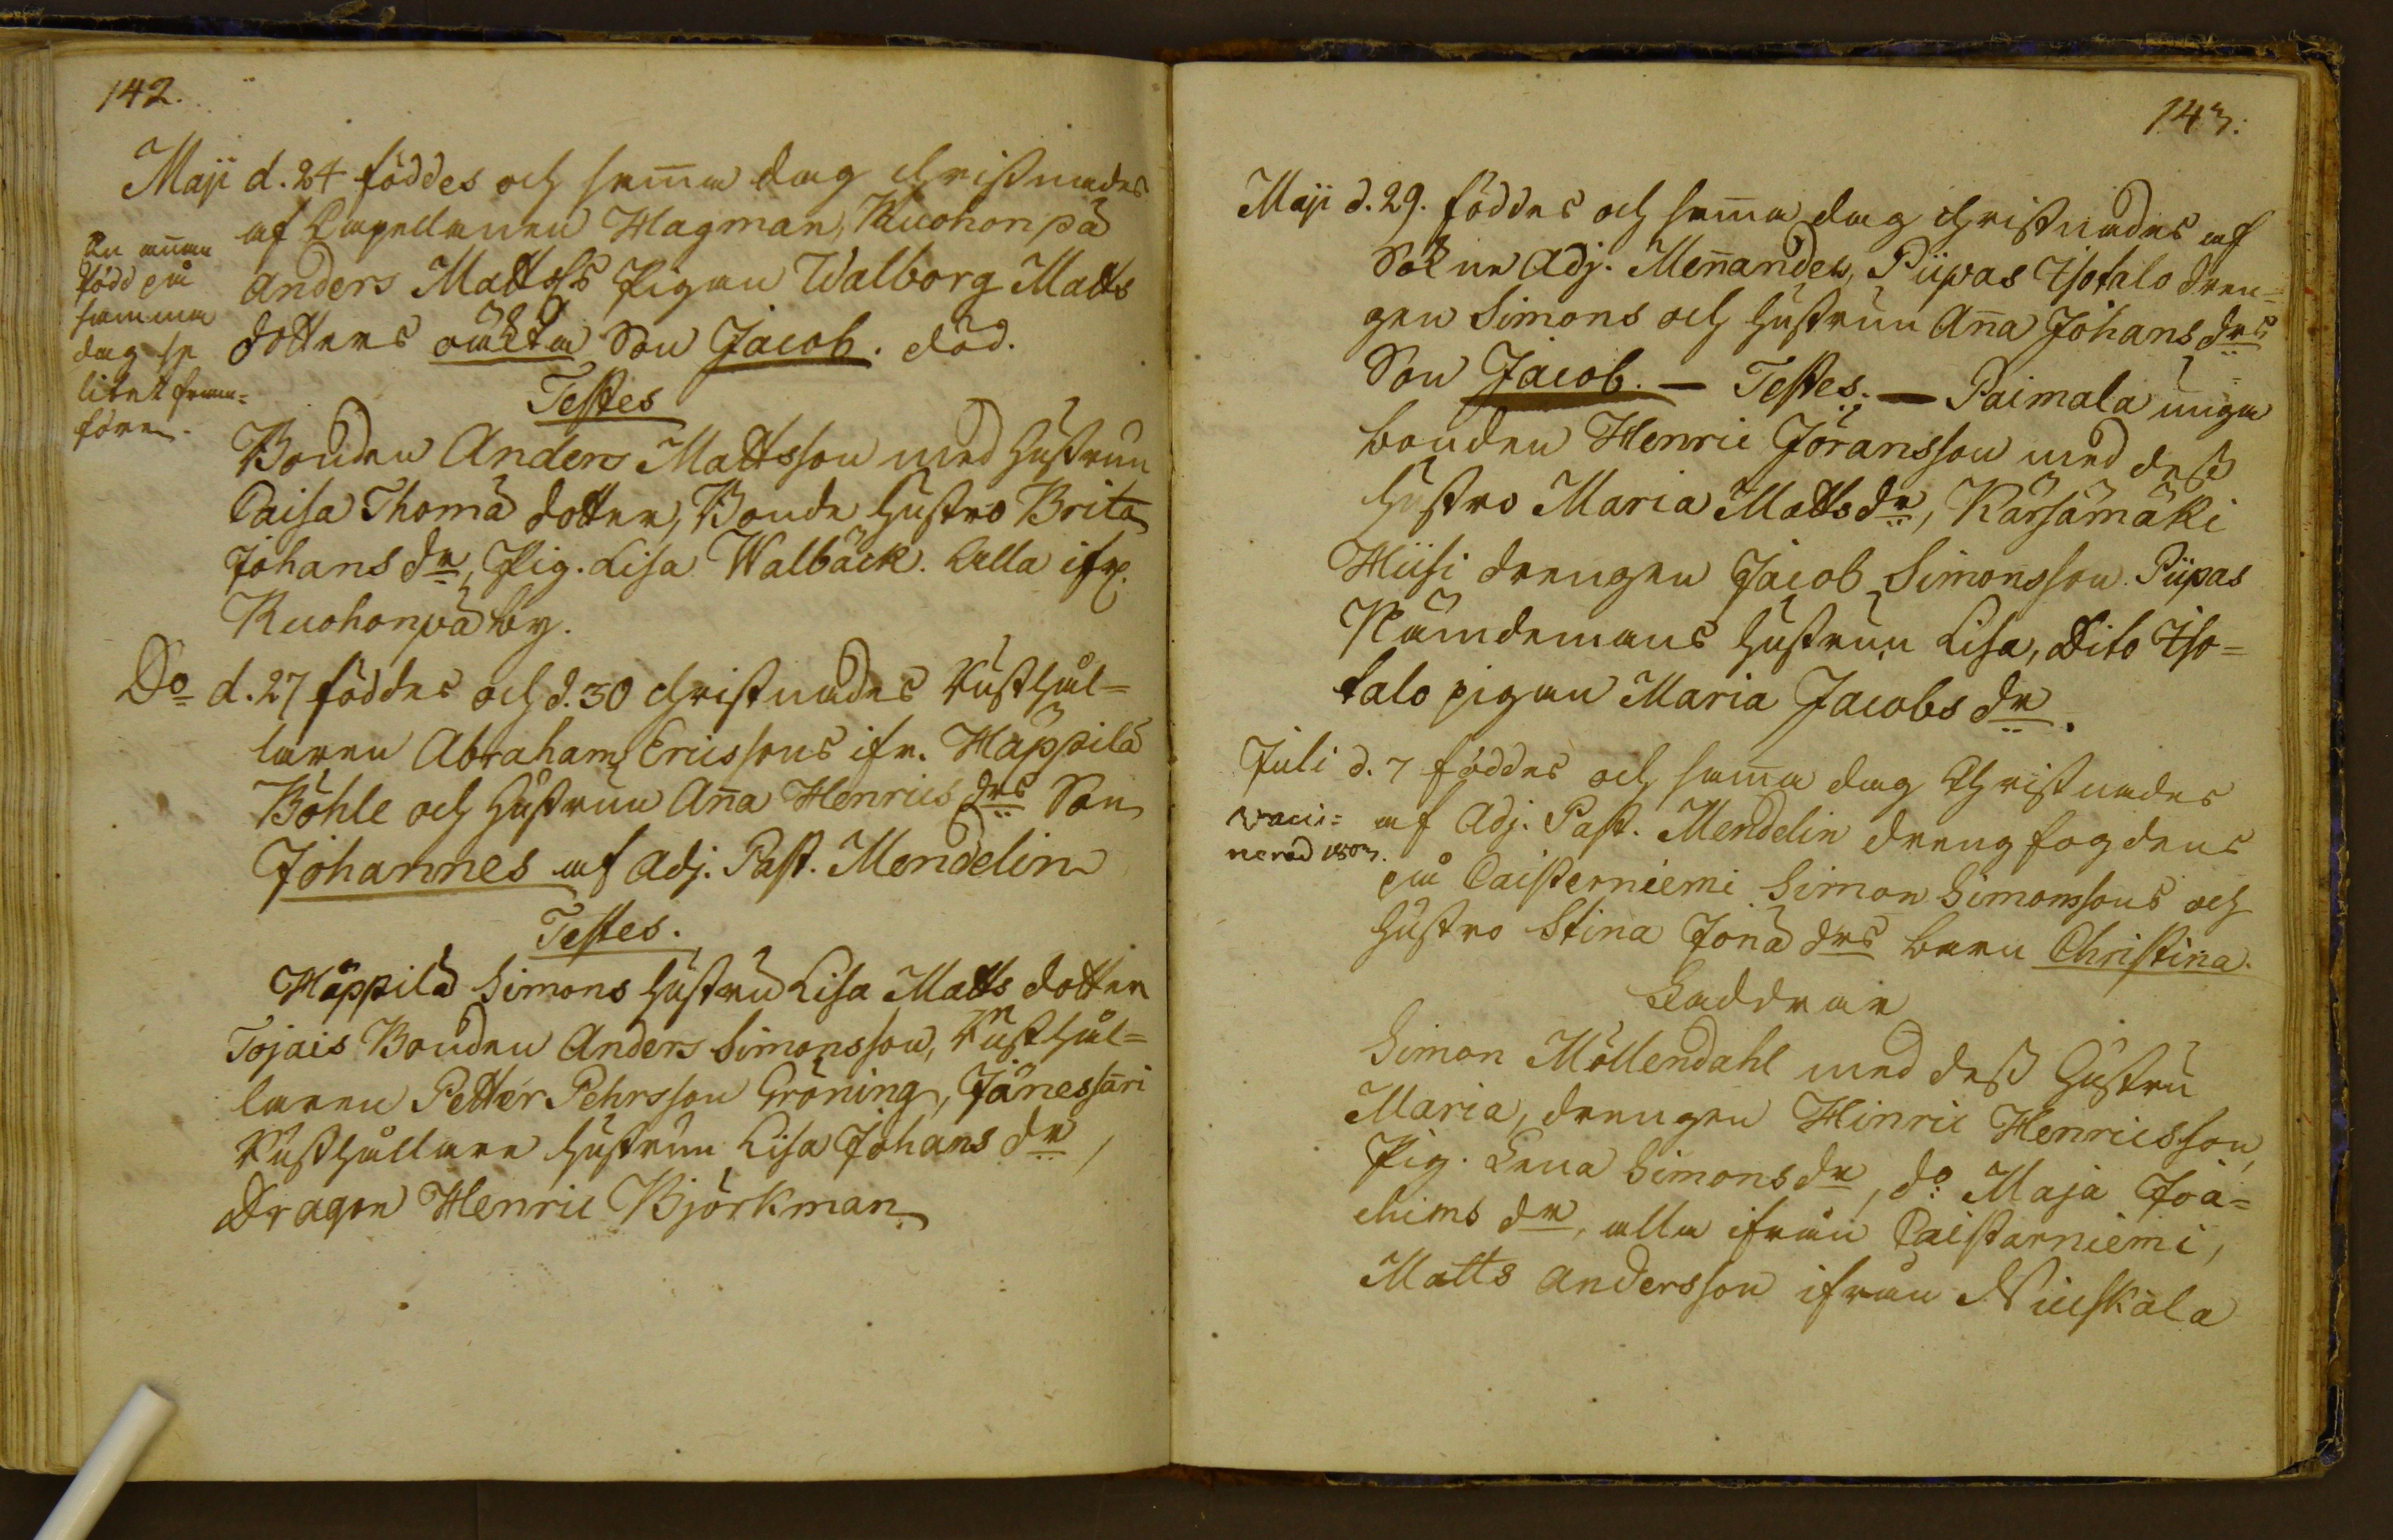 142.
Maji d. 24 föddes och sam̄a dag christnades
af Capellanen Hagman, Kuohonpä
Anders Mattss Pigan Walborg Matts
dotters oäckta Son Jacob. död.
En annan
född på
samma
dag se
litet fram=
före.
Testes
Bonden Anders Mattsson med hustrun
Caisa Thomä dotter, Bonde hustro Brita
Johans dr, Pig. Lisa Walbäck. Alla ifr.
Kuohonpä by.
Do d. 27 föddes och d. 30 christnades Rusthål=
laren Abraham Ericssons ifr. Häppilä
Böhle och hustrun An̄a Henrics drs Son
Johannes af Adj. Past. Mendelin
Testes.
Häppilä Simons hustru Lisa Matts dotter
Tojais Bonden Anders Simonsson, Rusthål=
laren Petter Pehrsson Gröning, Jänessari
Rusthållare hustrun Lisa Johans dr,
Dragon Henric Björkman
143.
Maji d. 29. föddes och sam̄a dag christnades af
Sokne Adj. Men̄ander, Piipas Isotalo dren=
gen Simons och hustrun An̄a Johans drs
Son Jacob. — Testes. — Paimala unga
bonden Henric Jöransson med dess
hustro Maria Matts dr, Kärsämäki
Hiisi drengen Jacob Simonsson. Piipas
Nämdemans hustrun Lisa, Dito Iso=
talo pigan Maria Jacobs dr.
Juli d. 7 föddes och sam̄a dag Christnades
vacci=
nerad 1803.
af Adj. Past. Mendelin drengfogdens
på Caisterniemi Simon Simonssons och
hustro Stina Jonä drs barn Christina.
Faddrar
Simon Möllendahl med dess hustru
Maria, drengen Hinric Henricsson,
Pig. Lena Simons dr, do Maja Joa=
chims dr, alla ifrån Caistarniemi,
Matts Andersson ifrån Niuskala